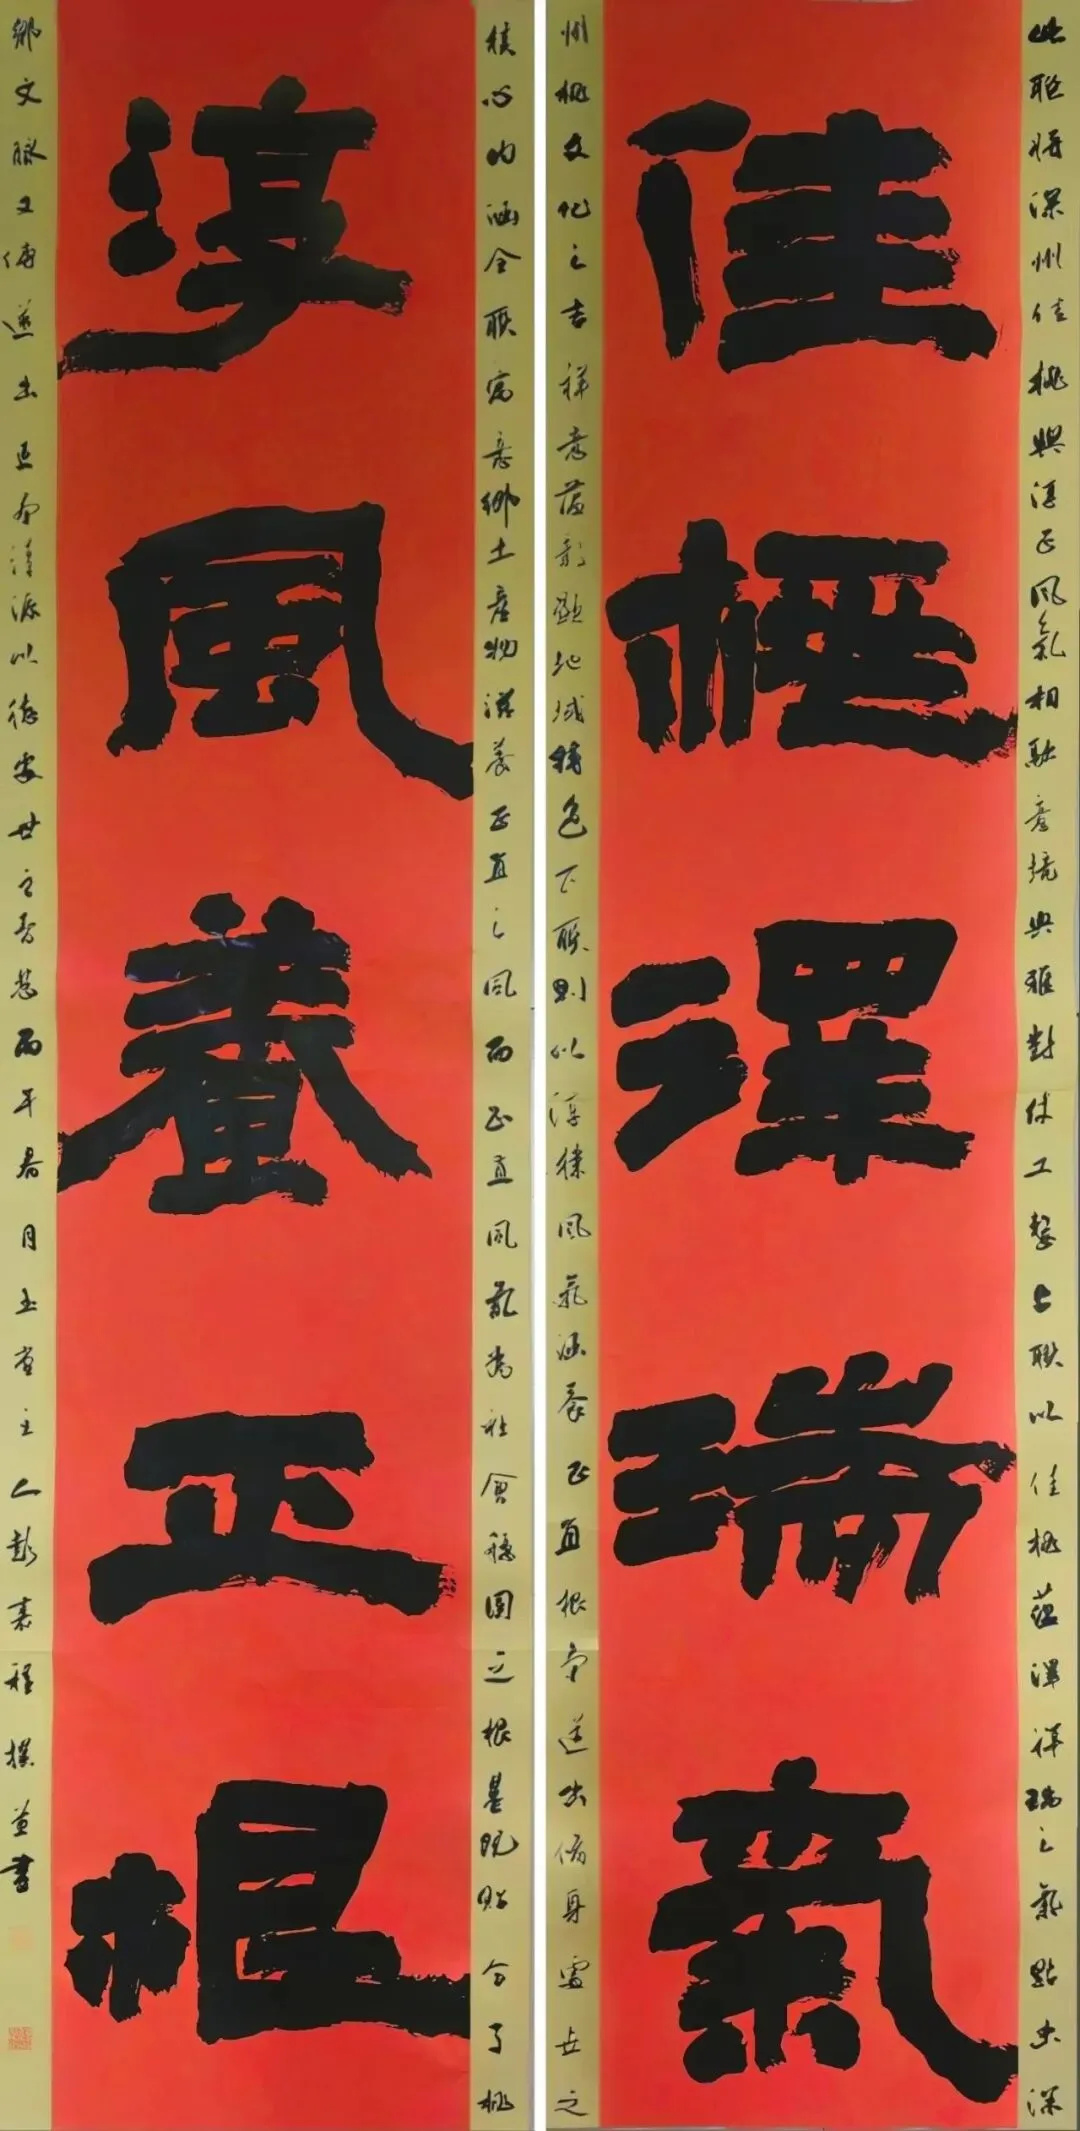 此聯将深州佳桃與淳正風氣相融意境典雅對仗工整上聯以佳桃蘊澤祥瑞之氣點出深
佳桃澤瑞氣
州桃文化之吉祥意蘊彰顯地域特色下聯則以淳樸風氣涵養正直根本道出修身處世之
核心内涵全聯寓意鄉土産物滋養正直之風而正直風氣為社會穩固之根基既貼合了桃
淳風養正根
鄉文脈又傳遞出正本清源以德安世之智慧丙午春月玉堂主人彭程撰並書